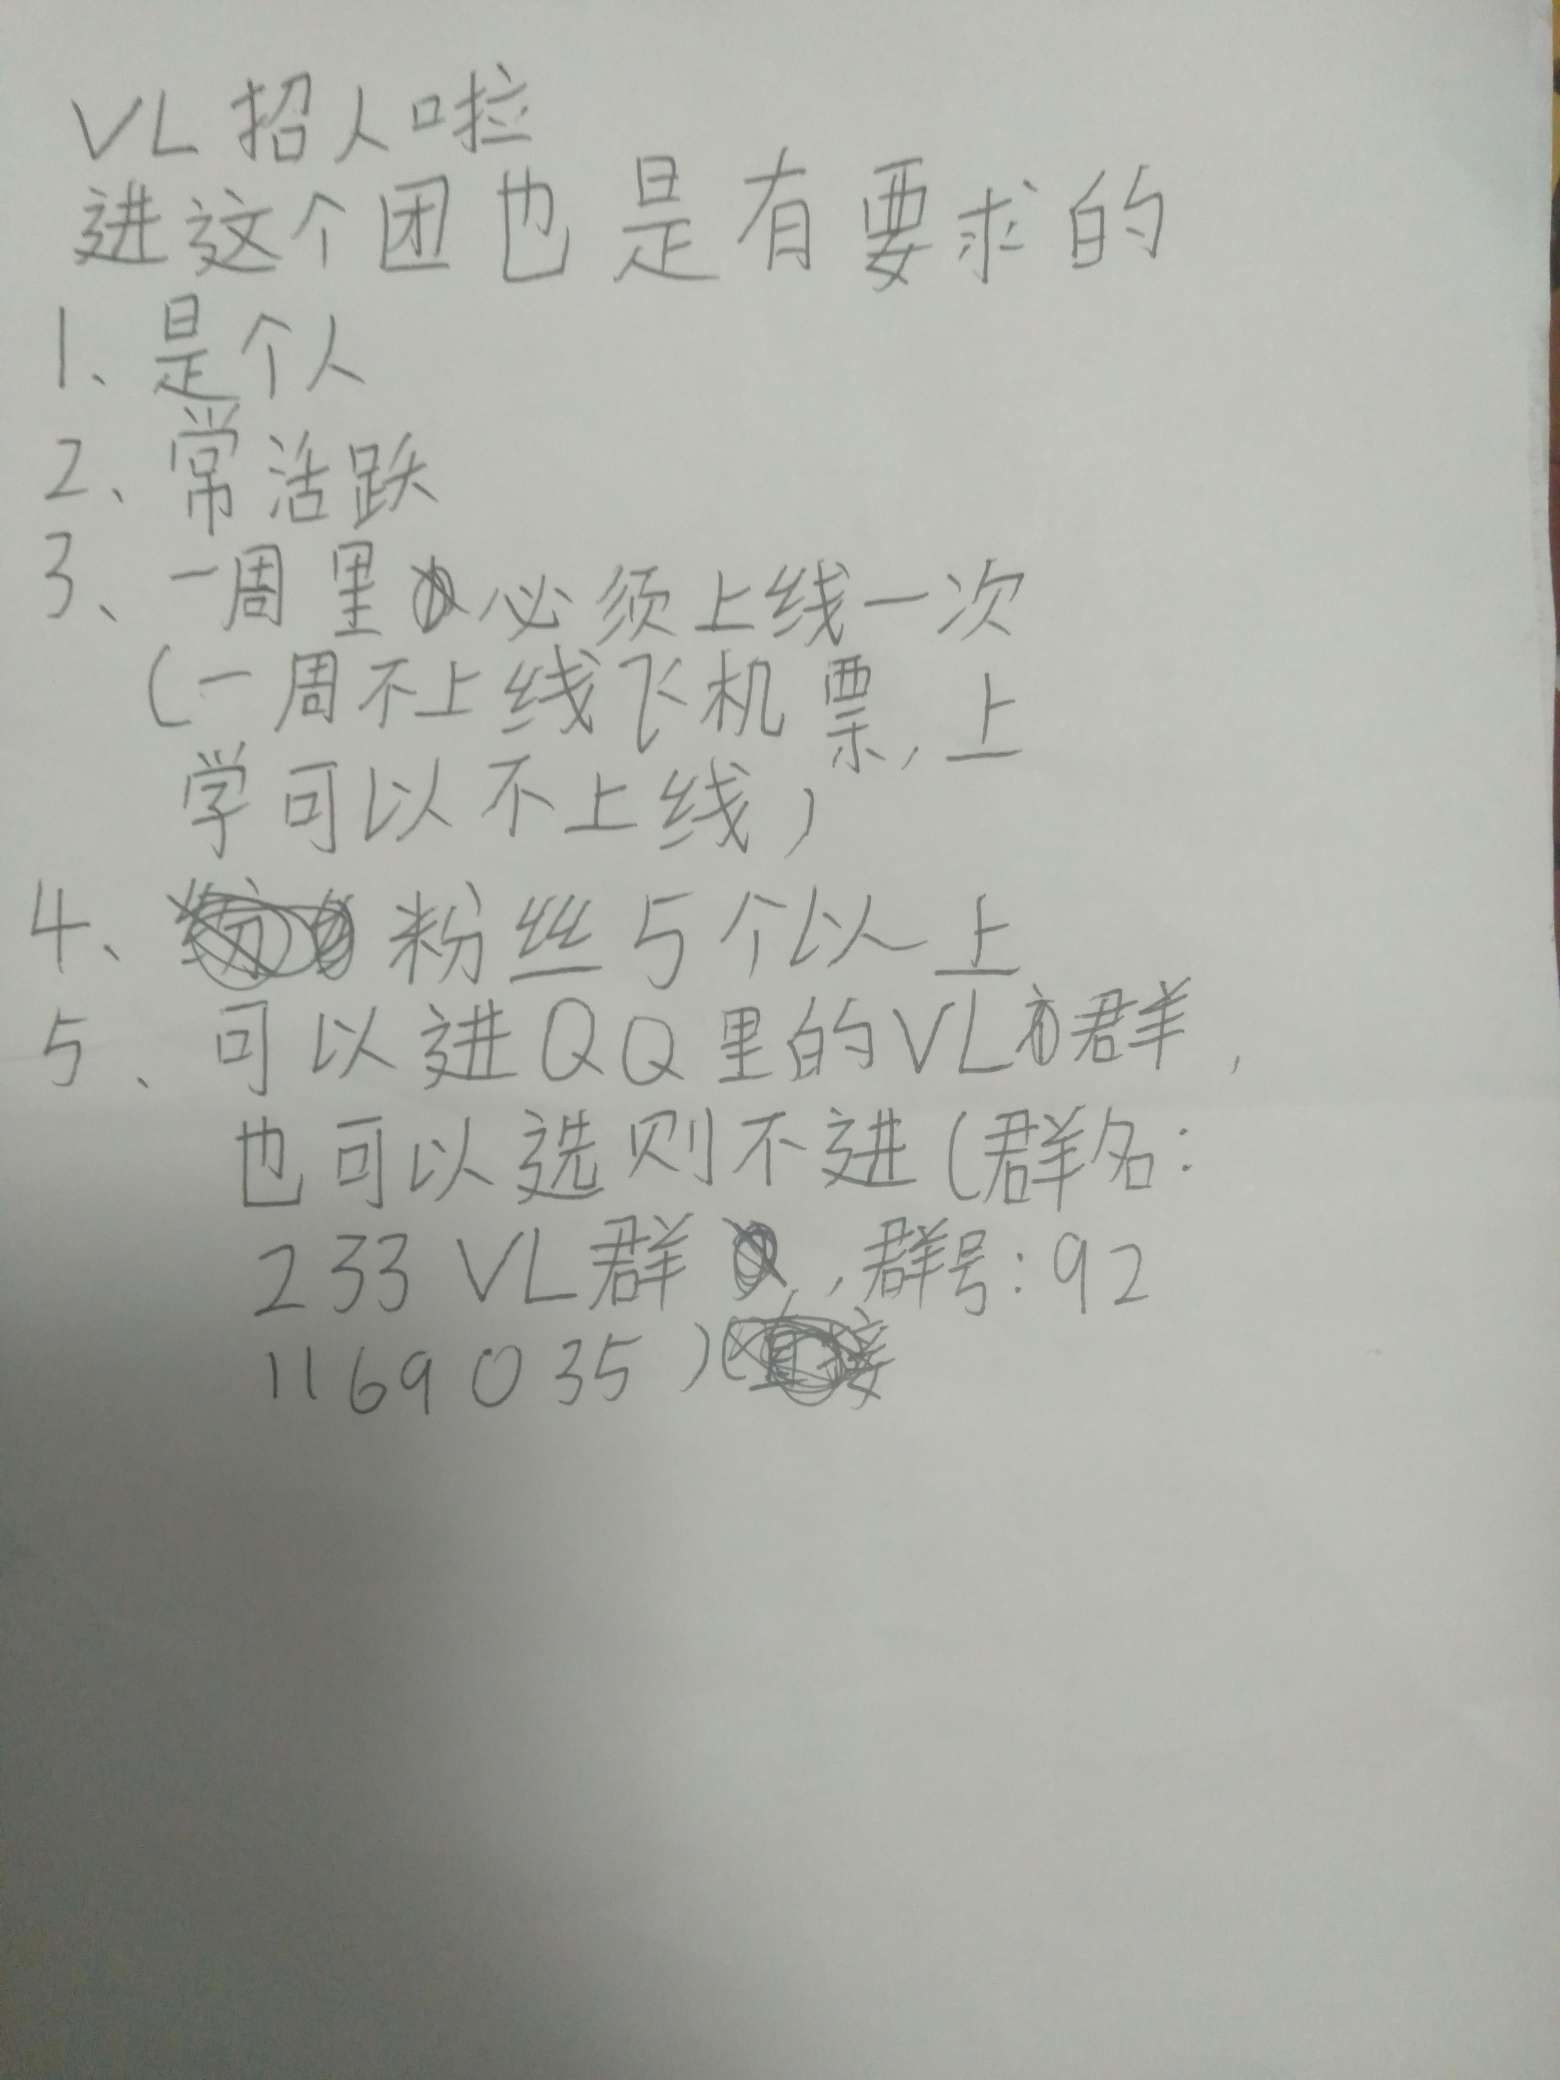 VL招人啦
进这个团也是有要求的
1、是个人
2、常活跃
3、一周里必须上线一次
(一周不上线飞机票,上
学可以不上线)
4、粉丝5个以上
5、可以进QQ里的VL群,
也可以选则不进(群名:
233VL群,群号:92
1169035)